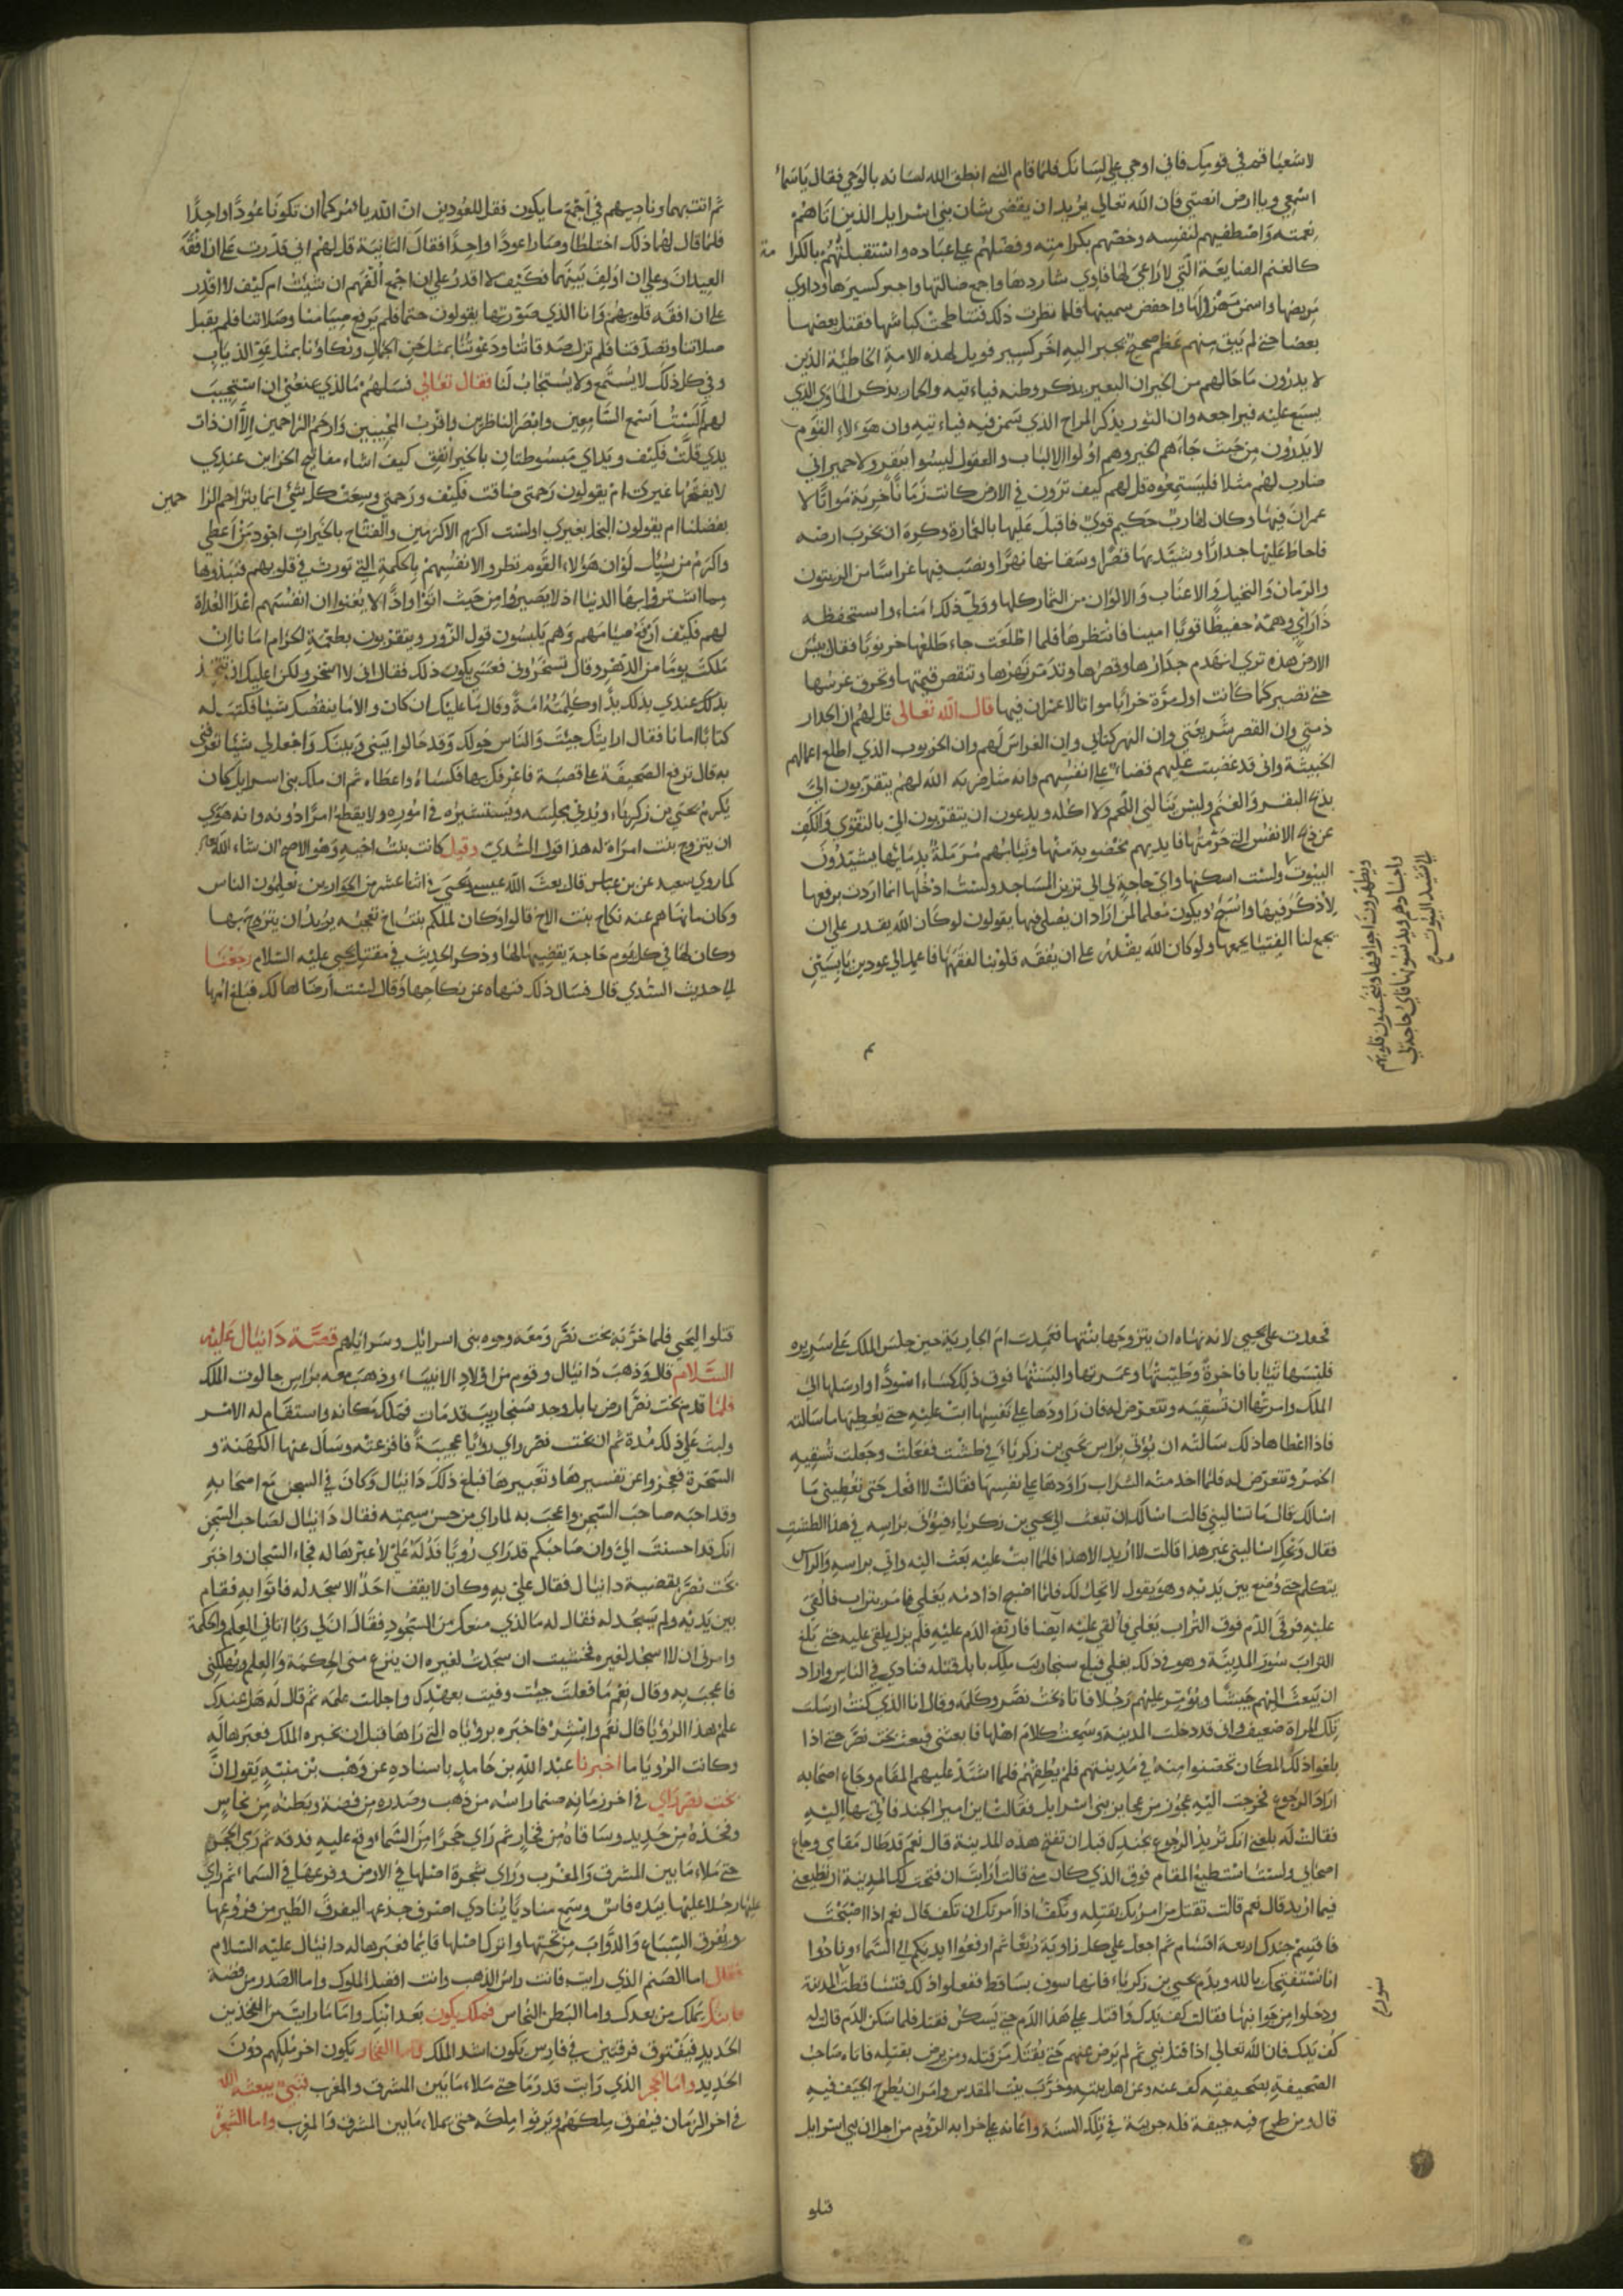 لاشعيا قم في قومك فاني اوحي على لسانك فلما قام النبي انطق الله لسانه بالوحي فقال يا سماء
اسمعي ويا ارض انصتي فان الله تعالى يريد ان يقضي شان بني اسرايل الذين اتاهم
نعمته واصطفيهم لنفسه وخصهم بكرامته وفضلهم على عباده واستقبلتهم بالكرا مة
كالغنم الضايعة التي لا راعي لها فاوي شاردها واجمع ضالتها واجبر كسيرها وداوي
مريضها واسمن مهزولها واحفض سمينها فلما نظرت ذلك فتناطحت كباشها فقتل بعضها
بعضا حتى لم يبق منهم عظم صحيح يجبر اليه اخر كسير فويل لهذه الامة الخاطية الذين
لا يدرون ما حالهم من الخير ان البعير يذكر وطنه فياء تيه والحمار يذكر الماوى الذي
يسبع عليه فيراجعه وان الثور يذكر المراح الذي سمن فيه فياء تيه وان هولاء القوم
لا يدرون من حيث جاءهم الخير وهم اولوا الالباب والعقول ليسوا ببقر ولا حمير اني
ضارب لهم مثلا فليستمعوه قل لهم كيف ترون في الارض كانت زمانا خربة مواتا لا
عمران فيها وكان لها رب حكيم قوي فاقبل عليها بالعمارة وكره ان تخرب ارضه
فاحاط عليها جدارا وشيد بها قصرا وسقا بها نهرا ونصب فيها غراسا من الزيتون
والرمان والنخيل والاعناب والالوان من الثمار كلها وولى ذلك امناء واستحفظه
ذا راي وهمة حفيظا قويا امينا فانتظرها فلما اطلعت جاء طلعها خرنوبا فقال بئس
الارض هذه نرى ان يهدم جدارها وقصرها وتدمر نهرها وتنقص قيمتها وتحرق غرسها
حتى تصير كما كانت اول مرة خرابا مواتا لا عمران فيها قال الله تعالى قل لهم ان الجدار
ذمتي وان القصر شريعتي وان النهر كتابي وان الغراس لهم وان الخرنوب الذي اطلع اعمالهم
الخبيثة واني قد غضبت عليهم قضاء على انفسهم وانه مثل ضربه الله لهم يتقربون الي
بذبح البقر والغنم وليس ينالني اللحم ولا اكله ويدعون ان يتقربون الي بالتقوى والكف
عن ذبح الانفس التي حرمتها فايديهم مخضوبة منها وثيابهم مرملة بدمائها يشيدون
البيوت ولست اسكنها واي حاجة لي الى تزيين المساجد ولست ادخلها انما اردت برفعها
لاذكر فيها واسبح ويكون معلما لمن اراد ان يصلي فيها يقولون لو كان الله يقدر على ان
يجمع لنا الفتيا يجمعها ولو كان الله يقدر على ان يفقه قلوبنا لفقهها فاعمد الى عودين يابسين
ويطهرون اجوافها وينجسون قلوبهم
واجسادهم ويدنسونها فاي حاجة لي
الى تشييد البيوت صح
ثم ائت بهما وناديهم في اجمع ما يكون فقل للعودين ان الله يامركما ان تكونا عودا واحدا
فلما قال لهما ذلك اختلطا وصارا عودا واحدا فقال الثانية قل لهم اني قدرت على ان افقه
العيدان وعلى ان اولف بينهما فكيف لا اقدر على ان اجمع الفهم ان شئت ام كيف لا اقدر
على ان افقه قلوبهم وانا الذي صورتها يقولون حتما فلم يرفع صيامنا وصلاتنا فلم يقبل
صلاتنا وتصدقنا فلم تزك صدقاتنا ودعوتنا بمثل حنين الجمال وبكاؤنا بمثل عوى الذياب
وفي كل ذلك لا يستمع ولا يستجاب لنا فقال تعالى فسلهم ما الذي يمنعني ان استجيب
لهم الست اسمع السامعين وابصر الناظرين واقرب المجيبين وارحم الراحمين الا ان ذات
يدي قلت فكيف ويداي مبسوطتان بالخير انفق كيف اشاء مفاتيح الخزاين عندي
لا يفتحها غيري ام يقولون رحمتي ضاقت فكيف ورحمتي وسعت كل شئ انما يتراحم الرا حمين
بفضلنا ام يقولون البخل بغيري اولست اكرم الاكرمين والفتاح بالخيرات اجود من اعطي
واكرم من سئيل لو ان هؤلاء القوم نظروا لانفسهم بالحكمة التي تورث في قلوبهم فنبذوها
مما اشتروا بها الدنيا اذ لا يصبروا من حيث اتوا واذا لا يغنوا ان انفسهم اعدا العداة
لهم فكيف ارفع صيامهم وهم يلبسون قول الزور ويتقربون بطعمة الحرام
ملكت يوما من الدهر وقال تسخر وني فعسى يكون ذلك فقال اني لا اسخر ولكن اعليك ان تتخذ
بذلك عندي بذلك يدا
كتابا امانا فقال ارايتك جيت والناس حولك وقد حالوا بيني وبينك واجعل لي شيئا تعرفني
به قال ترفع الصحيفة على قصبة فاعرفك بها فكساه واعطاه ثم ان ملك بني اسرايل كان
يكرم يحيى بن زكرياء ويدني مجلسه ويستشيره في اموره ولا يقطع امرا دونه وانه هوي
ان يتزوج بنت امراة له هذا قول السدي وقيل كانت بنت اخيه وهو الاصح ان شاء الله
كما روى سعيد عن بن عباس قال بعث الله عيسى ويحيى في اثنا عشر من الحوارين يعلمون الناس
وكان ما نهاهم عنه نكاح بنت الاخ قالوا وكان لملكهم بنت اخ تعجبه يريد ان يتزوج بها
وكان لها في كل يوم حاجة يقضيها لها وذكر الحديث في مقتل يحيى عليه السلام رجعنا
الى حديث السدي قال فسال ذلك فنهاه عن نكاحها وقال لست ارضاها لك فبلغ امها
فحقدت على يحيى لانه نهاه ان يتزوجها بنتها فعمدت ام الجارية حين جلس الملك على سريره
فلبسها ثيابا فاخرة وطيبتها وعمرتها والبستها فوق ذلك كساء اسودا وارسلها الى
الملك وامرتها ان تسقيه وتتعرض له فان راودها على نفسها ابت عليه حتى يعطيها ما سالته
فاذا اعطاها ذلك سالته ان يؤتى براس يحيى بن زكرياء في طشت ففعلت وجعلت تسقيه
الخمر وتتعرض له فلما اخذ منه الشراب راودها على نفسها فقالت لا افعل حتى تعطيني ما
اسالك قال ما تساليني قالت اسالك ان تبعث الى يحيى بن زكرياء فيؤتى براسه في هذا الطشت
فقال ويحك اساليني غير هذا قالت لا اريد الا هذا فلما ابت عليه بعث اليه واتي براسه والراس
يتكلم حتى وضع بين يديه وهو يقول لا تحل لك فلما اصبح اذا دمه يغلي فامر بتراب فالقى
عليه فرقى الدم فوق التراب يغلي فالقي عليه ايضا فارتفع الدم عليه فلم يزل يلقى عليه حتى بلغ
التراب سور المدينة وهو في ذلك يغلي فبلغ سنجاريب ملك بابل قتله فنادى في الناس واراد
ان يبعث اليهم جيشا ويؤمر عليهم رجلا فاتاه بخت نصر وكلمه وقال انا الذي كنت ارسلت
تلك المراة ضعيف واني قد دخلت المدينة وسمعت كلام اهلها فابعثني فبعث بخت نصر حتى اذا
بلغوا ذلك المكان تحصنوا منه في مدينتهم فلم يطقهم فلما اشتد عليهم المقام وجاع اصحابه
اراد الرجوع فخرجت اليه عجوز من عجايز بني اسرايل فقالت اين امير الجند فاتي بها اليه
فقالت له بلغني انك تريد الرجوع بجندك قبل ان تفتح هذه المدينة قال نعم قد طال مقامي وجاع
اصحابي ولست استطيع المقام فوق الذي كان مني قالت ارايت ان فتحت لك المدينة اتعطيني
فيما اريد قال نعم قالت تقتل من امرتك بقتله وتكف اذا امرتك ان تكف قال نعم اذا اصبحت
فاقسم جندك اربعة اقسام ثم اجعل على كل زاوية ربعا ثم ارفعوا ايديكم الى السماء ونادوا
انا نستفتحك يا لله وبدم يحيى بن زكرياء فانها سوف يتساقط ففعلوا ذلك فتساقطت المدينة
سور صح
ودخلوا من جوانبها فقالت كف يدك واقتل على هذا الدم حتى يسكن فقتل فلما سكن الدم قالت له
كف يدك فان الله تعالى اذا قتل نبي ثم لم يرض عنهم حتى يقتل من قتله ومن يرض بقتله فاتاه صاحب
الصحيفة بصحيفته كف عنه وعن اهل بيته وخرب بيت المقدس وامر ان يطرح الجيف فيه
قال ومن طرح فيه جيفة فله جزيته في تلك السنة واعانه على خرابه الروم من اجل ان بني اسرايل
قتلو
قتلوا ليحيى فلما خربه بخت نصر ومعه وجوه بني اسرائيل وسرائلهم قصة دانيال عليه
السلام قال وذهب دانيال وقوم من اولاد الانبياء وذهب معه براس جالوت الملك
فلما قدم بخت نصر ارض بابل وجد سنجاريب قد مات فملك مكانه واستقام له الامر
ولبث على ذلك مدة ثم ان بخت نصر راى رويا عجيبة فافزعته وسال عنها الكهنة و
السحرة فعجزوا عن تفسيرها وتعبيرها فبلغ ذلك دانيال وكان في السجن مع اصحابه
وقد احبه صاحب السجن واعجب به لما راى من حسن سيمته فقال دانيال لصاحب السجن
انك قد احسنت الي وان صاحبكم قد راى رويا فدله علي لاعبرها له فجاء السجان واخبر
بخت نصر بقضية دانيال فقال علي به وكان لا يقف احد الا سجد له فاتوا به فقام
بين يديه ولم يسجد له فقال له ما الذي منعك من السجود فقال ان لي ربا اتاني العلم والحكمة
وامرني ان لا اسجد لغيره فخشيت ان سجدت لغيره ان ينزع مني الحكمة والعلم ويهلكني
فاعجب به وقال نعم ما فعلت حيث وفيت بعهدك واجللت علمه ثم قال له هل عندك
علم هذا الرؤيا قال نعم وابشر فاخبره برؤياه التي راها قبل ان يخبره الملك فعبرها له
وكانت الرويا ما اخبرنا عبد الله بن حامد باسناده عن وهب بن منبه يقول ان
بخت نصر راى في اخر زمانه صنما راسه من ذهب وصدره من فضة وبطنه من نحاس
وفخذه من حديد وساقاه من فخار ثم راى حجرا من السماء وقع عليه فدقه ثم ربى الحجر
حتى ملاء ما بين المشرق والمغرب وراى شجرة اصلها في الارض وفرعها في السماء ثم راى
عليها رجلا عليها بيده فاس وسمع مناديا ينادي اضرب جذعها ليفرق الطير من فروعها
ويفرق السباع والدواب من تحتها واترك اصلها قائما فعبرها له دانيال عليه السلام
فقال اما الصنم الذي رايت فانت راس الذهب وانت افضل الملوك واما الصدر من فضة
فابنك يملك من بعدك واما البطن النحاس فملك يكون بعد ابنك واما ما رايت من الفخذين
الحديد فيفترق فرقتين في فارس يكون اشد الملك واما الفخار يكون اخر ملكهم دون
الحديد واما الحجر الذي رايت قد ربا حتى ملاء ما بين المشرق والمغرب فنبي يبعثه الله
في اخر الزمان فيفرق ملكهم ويربوا ملكه حتى يملاء ما بين المشرق والمغرب واما الشجرة